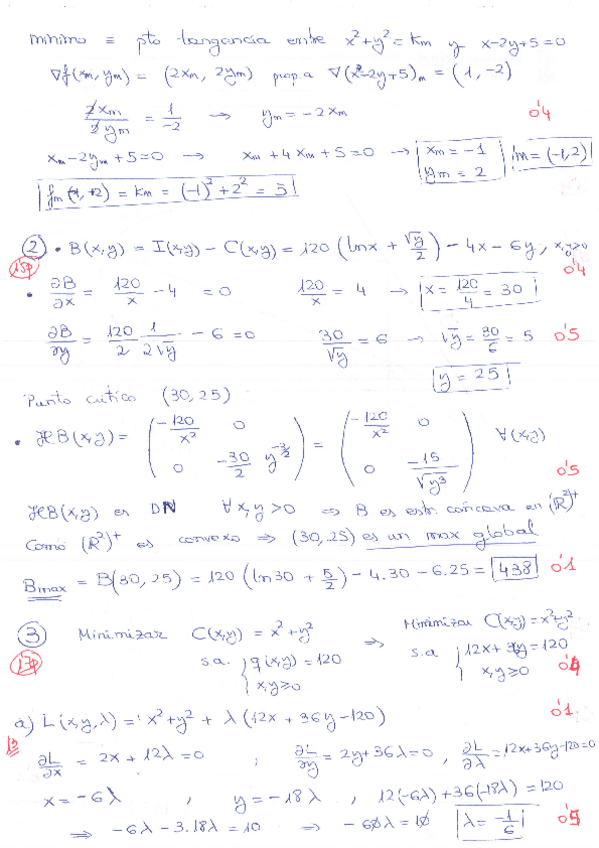 mínimo ≡ pto tangencia entre x²+y²=Km y x-2y+5=0
∇f(xm, ym) = (2xm, 2ym) prop. a ∇(x-2y+5)m = (1, -2)
2xm/2ym = 1/-2 → ym = -2xm 0'4
xm-2ym+5=0 → xm+4xm+5=0 → xm=-1 ym=2 m=(-1,2)
fm(-1,+2) = Km = (-1)²+2² = 5
② • B(x,y) = I(x,y) - C(x,y) = 120 (lnx + √y/2) - 4x - 6y, x,y>0
15p 0'4
• ∂B/∂x = 120/x - 4 = 0 120/x = 4 → x = 120/4 = 30
∂B/∂y = 120/2 1/2√y - 6 = 0 30/√y = 6 → √y = 30/6 = 5 0'5
y = 25
Punto crítico (30,25)
• HB(x,y) = (-120/x² 0 0 -30/2 y^-3/2) = (-120/x² 0 0 -15/√y³) ∀(x,y)
0'5
HB(x,y) es DN ∀x,y>0 ⇒ B es estr. cóncava en (R²)⁺
Como (R²)⁺ es convexo ⇒ (30,25) es un max global
Bmax = B(30,25) = 120 (ln30 + 5/2) - 4.30 - 6.25 = 438 0'1
③ Minimizar C(x,y) = x²+y² ⇒ Minimizar C(x,y)=x²+y²
s.a. { q(x,y) = 120 x,y≥0 s.a { 12x+36y=120 x,y≥0
a) L(x,y,λ) = x²+y² + λ(12x + 36y - 120) 0'1
∂L/∂x = 2x + 12λ = 0 ; ∂L/∂y = 2y+36λ=0 , ∂L/∂λ = 12x+36y-120=0
x = -6λ , y = -18λ , 12(-6λ)+36(-18λ) = 120
⇒ -6λ - 3.18λ = 10 ⇒ -60λ = 10 λ = -1/6 0'5